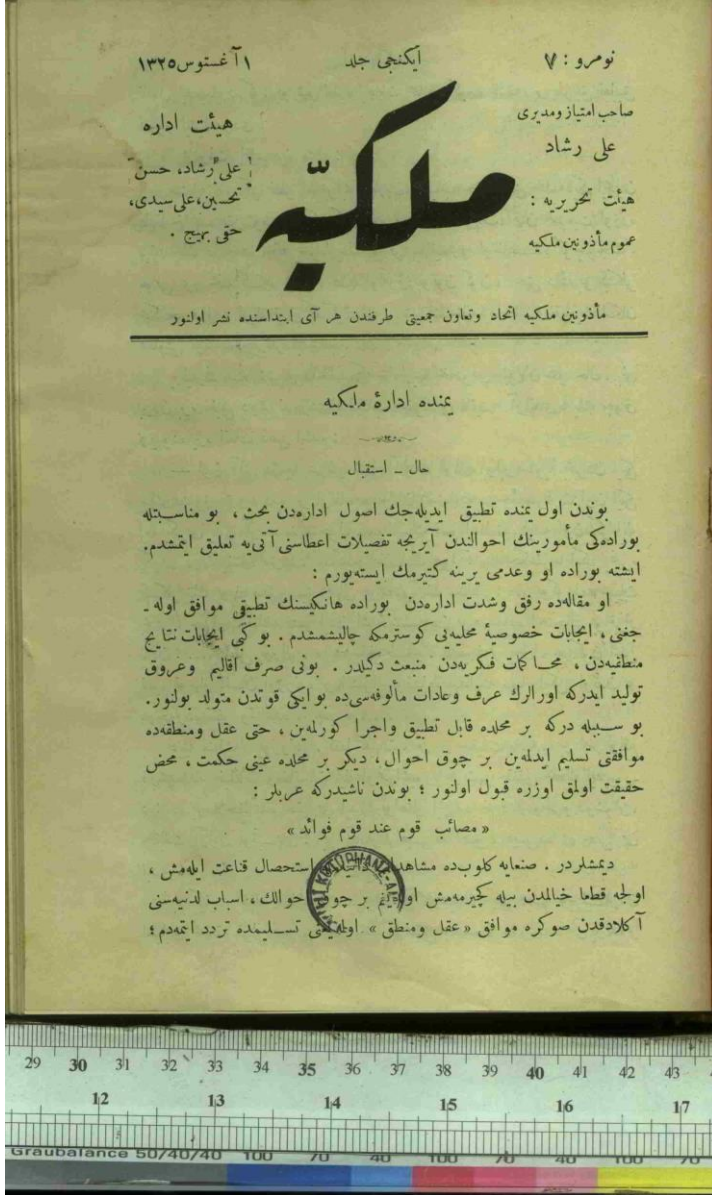 نومرو : ٧
ایکنجی جلد
١ آغستوس ١٣٢٥
صاحب امتیاز ومدیری
علی رشاد
هیأت تحریریه :
عموم مأذونین ملکیه
ملکیّه
هیئت اداره
علی رشاد، حسن
تحسین، علی سیدی،
حقی بهیج .
مأذونین ملکیه اتحاد وتعاون جمعیتی طرفندن هر آی ابتداسنده نشر اولنور
یمنده ادارۀ ملکیه
حال ـ استقبال
بوندن اول یمنده تطبیق ایدیله‌جك اصول اداره‌دن بحث ، بو مناسبتله
بوراده‌کی مأمورینك احوالندن آیریجه تفصیلات اعطاسنی آتی‌یه تعلیق ایتمشدم.
ایشته بوراده او وعدمی یرینه کتیرمك ایسته‌یورم :
او مقاله‌ده رفق وشدت اداره‌دن بوراده هانکیسنك تطبیقی موافق اوله ـ
جغنی ، ایجابات خصوصیۀ محلیه‌یی کوسترمکه چالیشمشدم . بو کبی ایجابات نتایج
منطقیه‌دن ، محـاکمات فکریه‌دن منبعث دکلدر . بونی صرف اقالیم وعروق
تولید ایدرکه اورالرك عرف وعادات مألوفه‌سی‌ده بو ایکی قوتدن متولد بولنور.
بو سـببله درکه بر محلده قابل تطبیق واجرا کورلمه‌ین ، حتی عقل ومنطقه‌ده
موافقتی تسلیم ایدلمه‌ین بر چوق احوال ، دیکر بر محلده عینی حکمت ، محض
حقیقت اولمق اوزره قبول اولنور ؛ بوندن ناشیدرکه عربلر :
« مصائب قوم عند قوم فوائد »
دیمشلردر . صنعایه کلوب‌ده استحصال قناعت ایله‌مش ،
اولجه قطعا خیالمدن بیله کچیرمه‌مش بر احوالك ، اسباب لدنیه‌سنی
آکلادقدن صوکره موافق « عقل ومنطق » تسـلیمده تردد ایتمه‌دم ؛
29 30 31 32 33 34 35 36 37 38 39 40 41 42 43
12 13 14 15 16 17
Graubalance 50/40/40 100 70 40 100 70 40 100 70